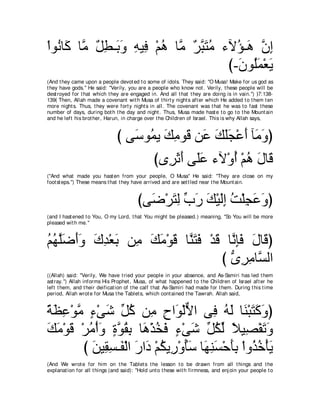 إِنَّ هَـؤُلاءِ مُتَبَّرٌ مَّا هُمْ فِيهِ وَبَـطِلٌ مَّا كَانُواْ
يَعْمَلُونَ-)
(And they came upon a people devoted to some of idols. They said: "O Musa! Make for us god as
they have gods." He said: "Verily, you are a people who know not. Verily, these people will be
destroyed for that which they are engaged in. And all that they are doing is in vain.") (7:138-
139( Then, Allah made a covenant with Musa of thirty nights after which He added to them ten
more nights. Thus, they were forty nights in all. The covenant was that he was to fast these
number of days, during both the day and night. Thus, Musa made haste to go to the Mountain
and he left his brother, Harun, in charge over the Children of Israel. This is why Allah says,
(وَمَآ أَعْجَلَكَ عَن قَومِكَ يمُوسَى )
قَالَ هُمْ أُوْلاءِ عَلَى أَثَرِى)
("And what made you hasten from your people, O Musa" He said: "They are close on my
footsteps.") These means that they have arrived and are settled near the Mountain.
(وَعَجِلْتُ إِلَيْكَ رَبِّ لِتَرْضَى)
(and I hastened to You, O my Lord, that You might be pleased.) meaning, "So You will be more
pleased with me."
(قَالَ فَإِنَّا قَدْ فَتَنَّا قَوْمَكَ مِن بَعْدِكَ وَأَضَلَّهُمُ
السَّامِرِىُّ )
((Allah) said: "Verily, We have tried your people in your absence, and As-Samiri has led them
astray.") Allah informs His Prophet, Musa, of what happened to the Children of Israel after he
left them, and their deification of the calf that As-Samiri had made for them. During this time
period, Allah wrote for Musa the Tablets, which contained the Tawrah. Allah said,
(وَكَتَبْنَا لَهُ فِى الاٌّلْوَاحِ مِن كُلِّ شَىْءٍ مَّوْعِظَةً
وَتَفْصِيلاً لِّكُلِّ شَىْءٍ فَخُذْهَا بِقُوَّةٍ وَأْمُرْ قَوْمَكَ
يَأْخُذُواْ بِأَحْسَنِهَا سَأُوْرِيكُمْ دَارَ الْفَـسِقِينَ )
(And We wrote for him on the Tablets the lesson to be drawn from all things and the
explanation for all things (and said): "Hold unto these with firmness, and enjoin your people to